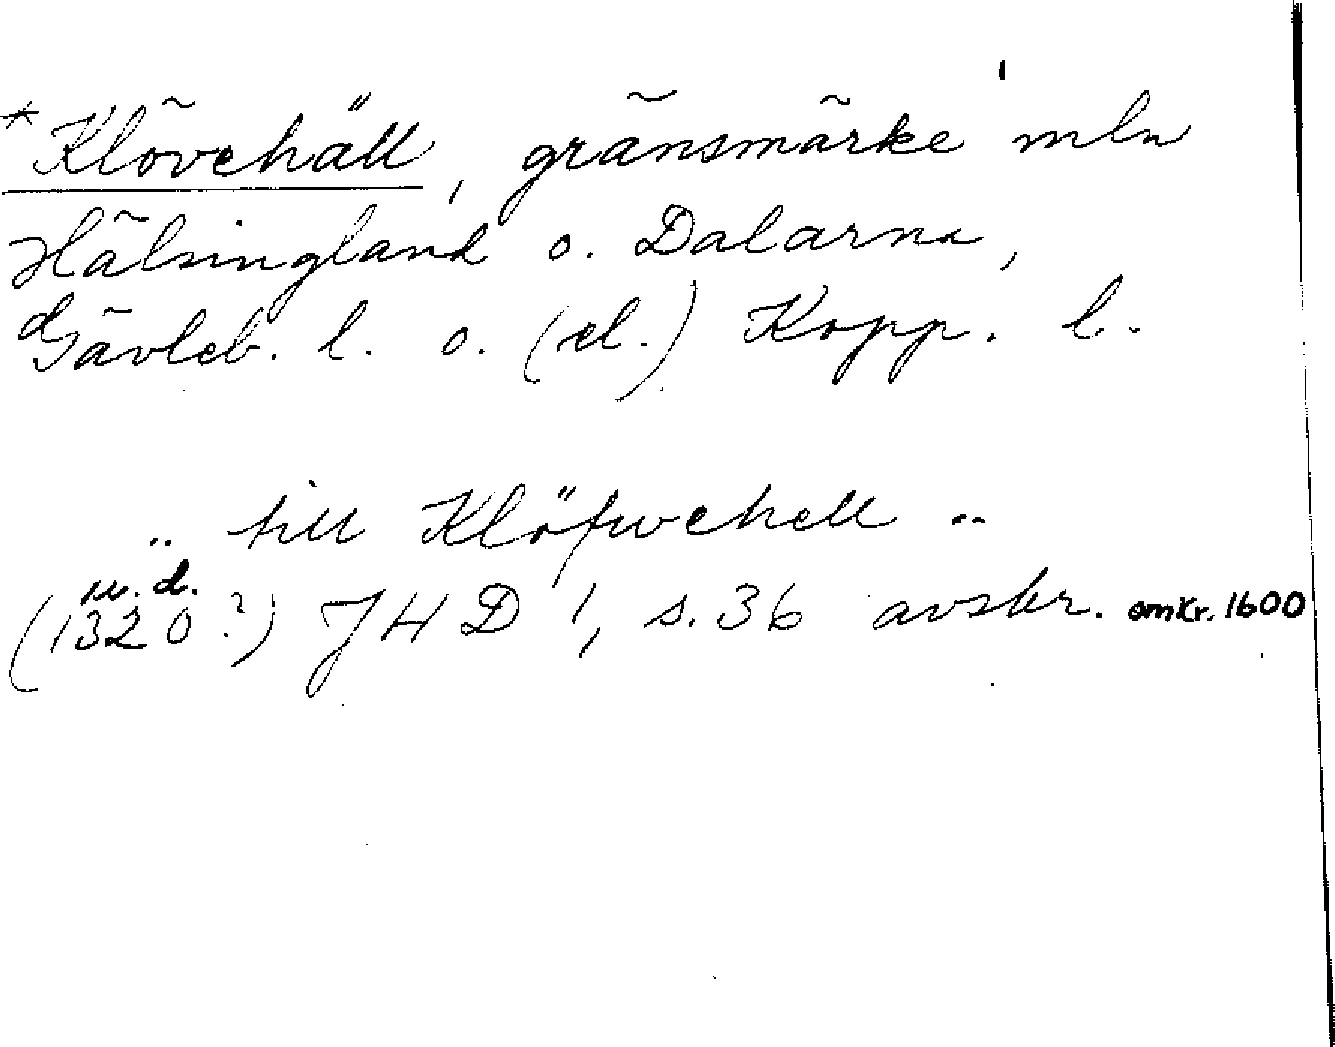 *Klövehäll, gränsmärke mln
Hälsingland o. Dalarna,
Gävleb. l. o. (el.) Kopp. l.
.. till Klöfwehell ..
u. d.
(1320?) JHD 1, s. 36 avskr. omkr. 1600